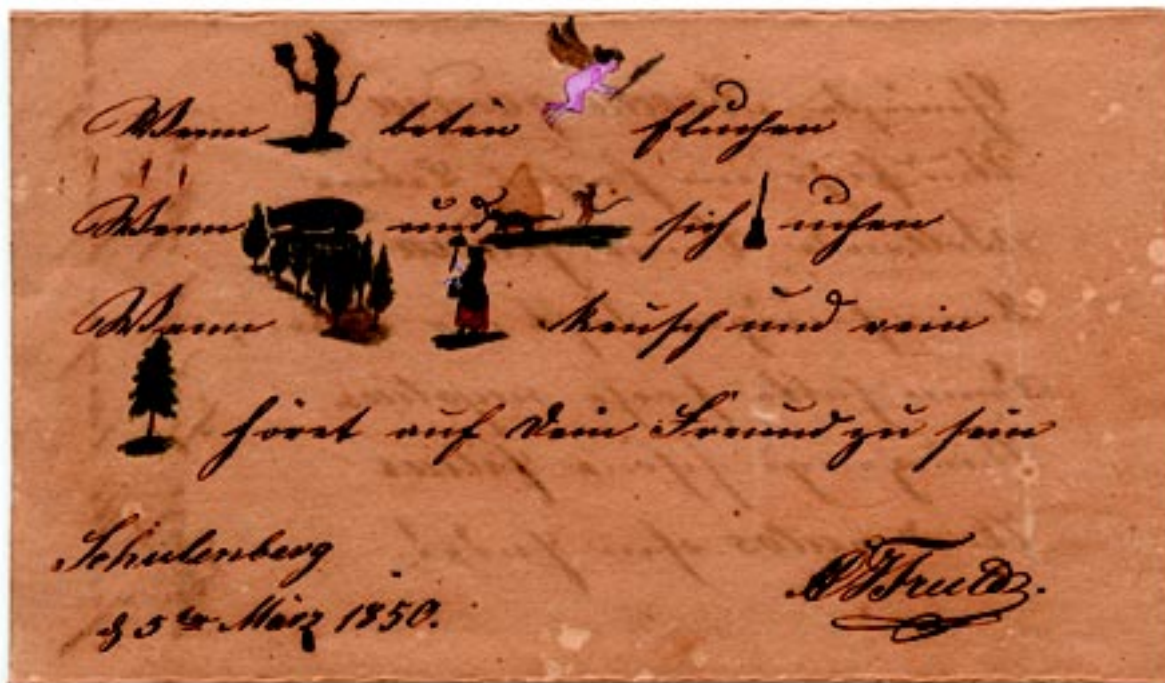 Wenn beten fluchen
Wenn und sich uchen
Wenn keusch und rein
höret auf Dein Freund zu sein
Schulenberg
d 5ter März 1850.